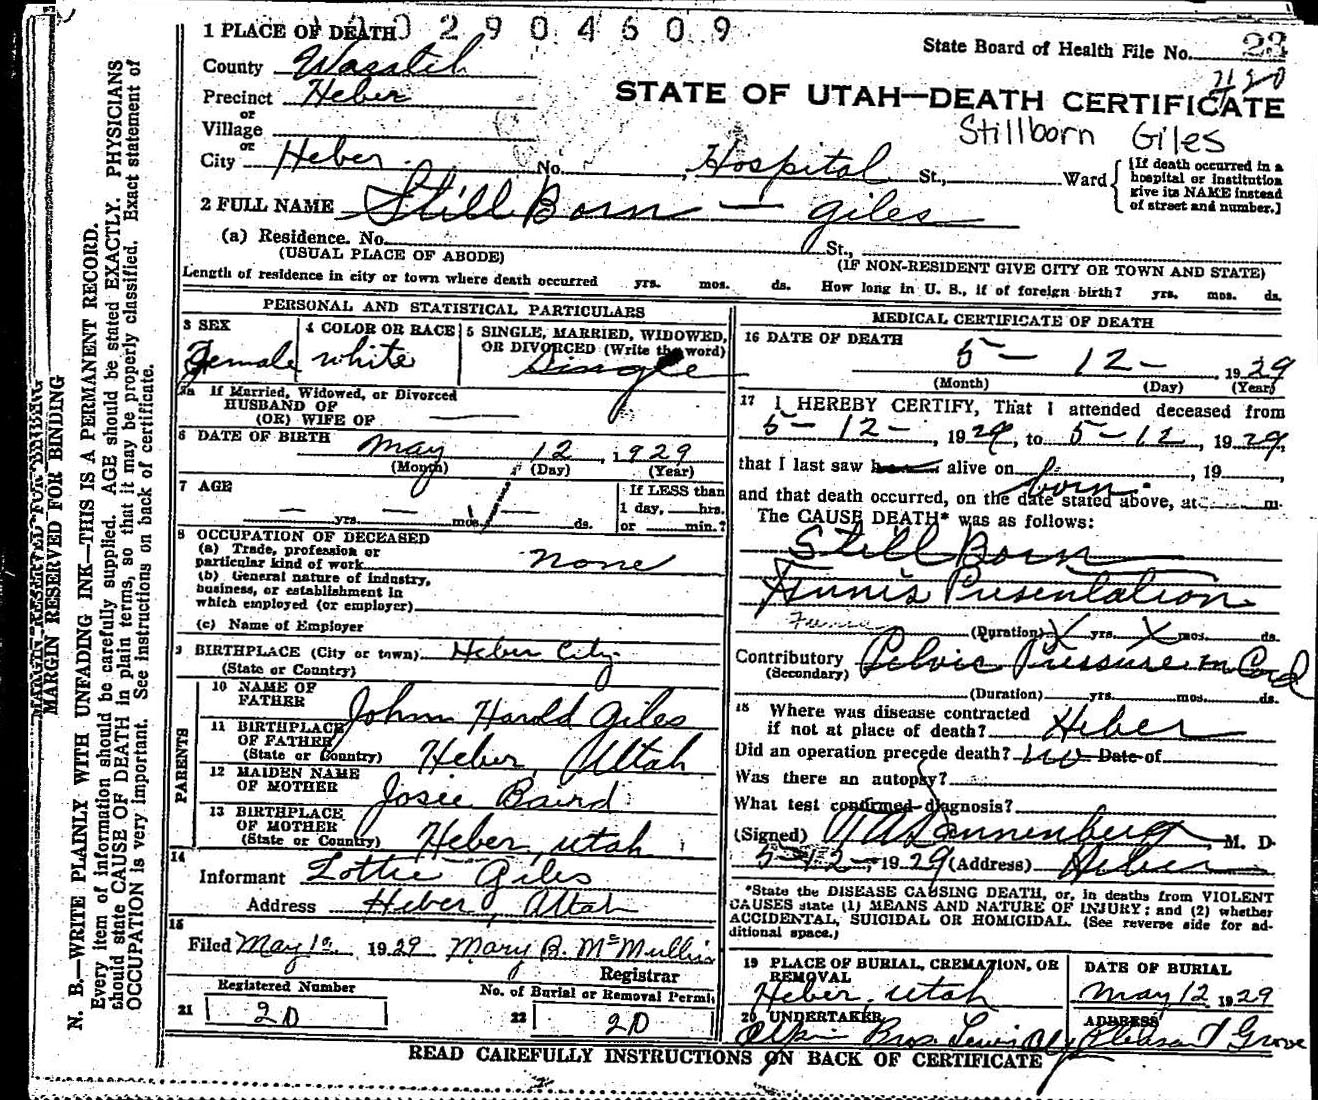 1 PLACE OF DEATH 2 9 0 4 6 0 9
State Board of Health File No. 23
County Wasatch
Precinct Heber
or
Village
or
City Heber No. Hospital St., Ward
STATE OF UTAH—DEATH CERTIFICATE
Stillborn Giles
[If death occurred in a
hospital or institution
give its NAME instead
of street and number.]
2 FULL NAME Still Born — Giles
(a) Residence. No. St.,
(USUAL PLACE OF ABODE) (IF NON-RESIDENT GIVE CITY OR TOWN AND STATE)
Length of residence in city or town where death occurred yrs. mos. ds. How long in U. S., if of foreign birth? yrs. mos. ds.
PERSONAL AND STATISTICAL PARTICULARS
3 SEX 4 COLOR OR RACE 5 SINGLE, MARRIED, WIDOWED,
OR DIVORCED (Write the word)
Female white Single
5a If Married, Widowed, or Divorced
HUSBAND OF
(OR) WIFE OF
6 DATE OF BIRTH May 12, 1929
(Month) (Day) (Year)
7 AGE If LESS than
1 day, hrs.
yrs. mos. ds. or min.?
8 OCCUPATION OF DECEASED
(a) Trade, profession or
particular kind of work none
(b) General nature of industry,
business, or establishment in
which employed (or employer)
(c) Name of Employer
9 BIRTHPLACE (City or town) Heber City
(State or Country)
PARENTS
10 NAME OF
FATHER John Harold Giles
11 BIRTHPLACE
OF FATHER
(State or Country) Heber, Utah
12 MAIDEN NAME
OF MOTHER Josie Baird
13 BIRTHPLACE
OF MOTHER
(State or Country) Heber, Utah
14
Informant Lottie Giles
Address Heber, Utah
15
Filed May 1929 Mary B. McMullin
Registrar
Registered Number No. of Burial or Removal Permit
21 20 22 20
MEDICAL CERTIFICATE OF DEATH
16 DATE OF DEATH
5 — 12 — 1929
(Month) (Day) (Year)
17 I HEREBY CERTIFY, That I attended deceased from
5 — 12 —, 1929, to 5 — 12, 1929,
that I last saw alive on , 19 ,
born
and that death occurred, on the date stated above, at m.
The CAUSE DEATH* was as follows:
Still Born
Funis Presentation
(Duration) X yrs. X mos. ds.
Contributory Pelvic Pressure on Cord
(Secondary)
(Duration) yrs. mos. ds.
18 Where was disease contracted
if not at place of death? Heber
Did an operation precede death? no Date of
Was there an autopsy?
What test confirmed diagnosis?
(Signed) Dannenberg, M. D.
5-12-, 1929 (Address) Heber
*State the DISEASE CAUSING DEATH, or, in deaths from VIOLENT
CAUSES state (1) MEANS AND NATURE OF INJURY; and (2) whether
ACCIDENTAL, SUICIDAL OR HOMICIDAL. (See reverse side for ad-
ditional space.)
19 PLACE OF BURIAL, CREMATION, OR
REMOVAL
Heber, Utah
DATE OF BURIAL
May 12 1929
20 UNDERTAKER
Bros.
ADDRESS
Pleasant Grove
READ CAREFULLY INSTRUCTIONS ON BACK OF CERTIFICATE
MARGIN RESERVED FOR BINDING
N. B.—WRITE PLAINLY WITH UNFADING INK—THIS IS A PERMANENT RECORD.
Every item of information should be carefully supplied. AGE should be stated EXACTLY. PHYSICIANS
should state CAUSE OF DEATH in plain terms, so that it may be properly classified. Exact statement of
OCCUPATION is very important. See instructions on back of certificate.